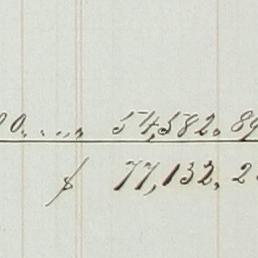 00.... 54,582.89
$ 77,132.2